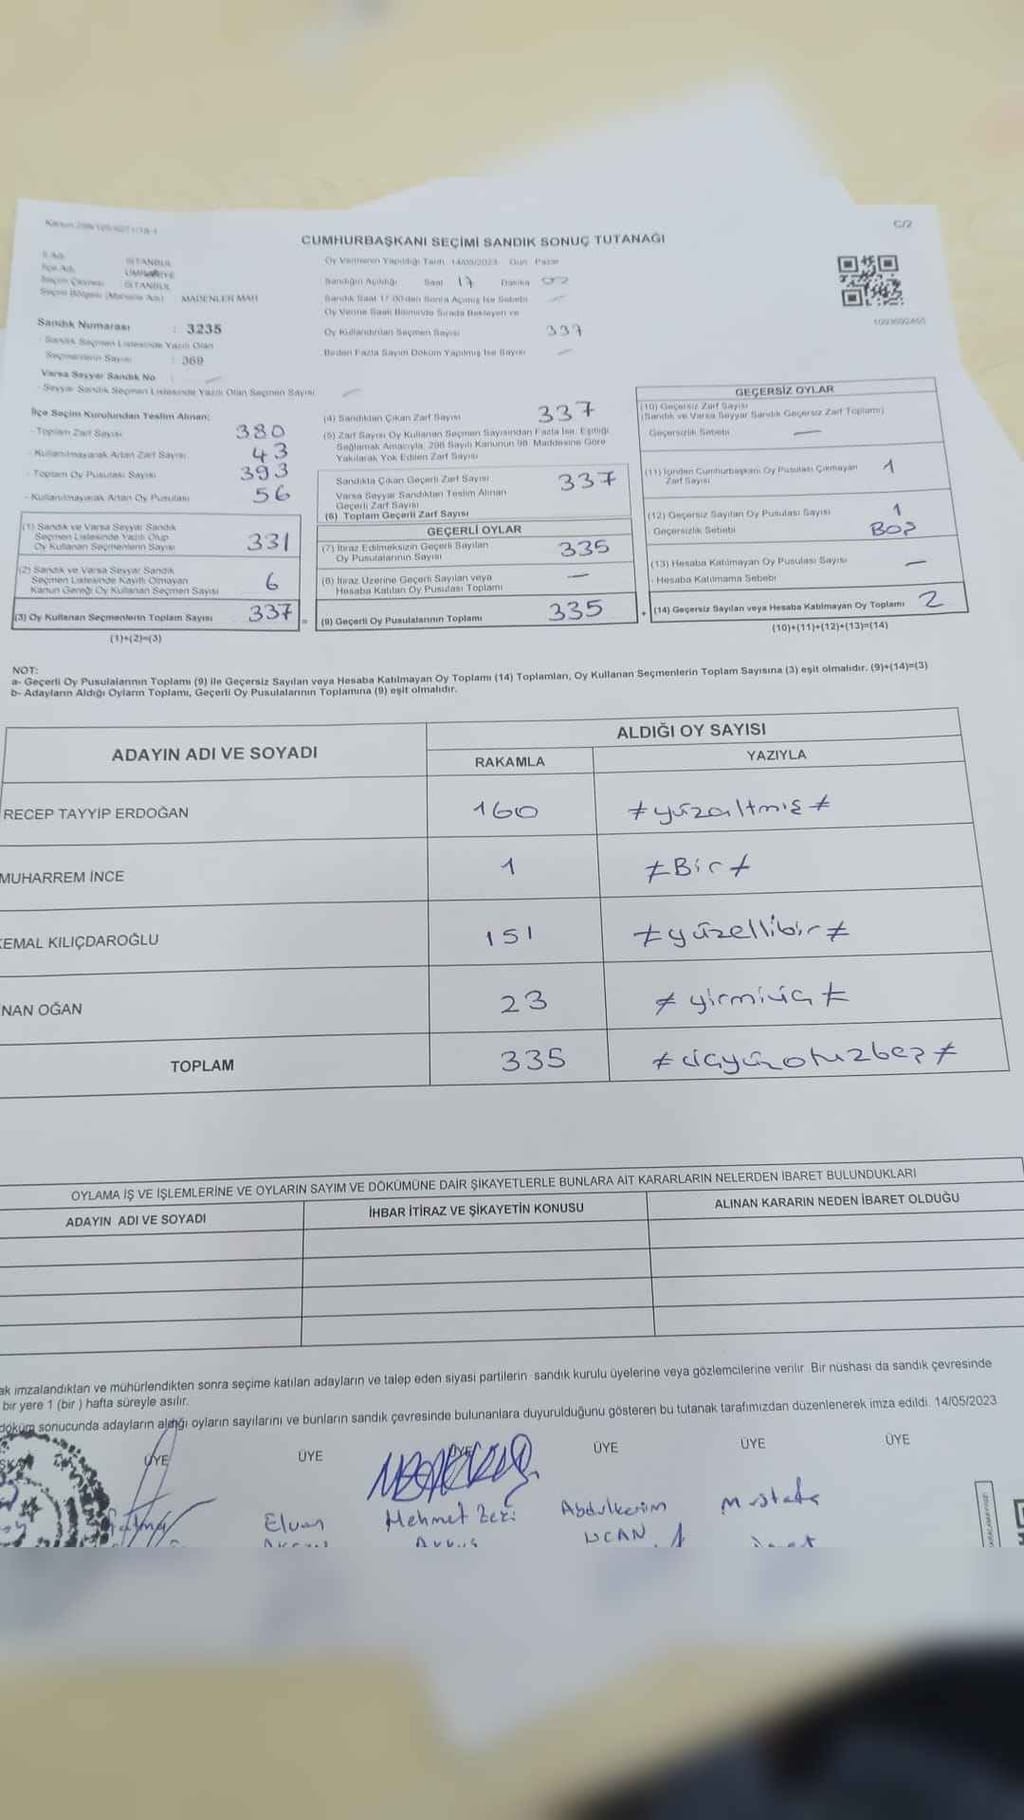 C/2
CUMHURBAŞKANI SEÇİMİ SANDIK SONUÇ TUTANAĞI
İSTANBUL
ÜMRANİYE
İSTANBUL
MADENLER MAH
Sandık Numarası : 3235
Sandık Seçmen Listesinde Yazılı Olan
Seçmenlerin Sayısı : 369
Varsa Seyyar Sandık No
Seyyar Sandık Seçmen Listesinde Yazılı Olan Seçmen Sayısı
Oy Vermenin Yapıldığı Tarih 14/05/2023 Gün Pazar
Sandığın Açıldığı Saat 17 Dakika
Sandık Saat 17.00'den Sonra Açılmış İse Sebebi
Oy Verme Saati Bitiminde Sırada Bekleyen ve
Oy Kullandırılan Seçmen Sayısı 337
Birden Fazla Sayım Döküm Yapılmış İse Sayısı —
1093692455
İlçe Seçim Kurulundan Teslim Alınan;
- Toplam Zarf Sayısı 380
- Kullanılmayarak Artan Zarf Sayısı 43
- Toplam Oy Pusulası Sayısı 393
- Kullanılmayarak Artan Oy Pusulası 56
(1) Sandık ve Varsa Seyyar Sandık
Seçmen Listesinde Yazılı Olup
Oy Kullanan Seçmenlerin Sayısı 331
(2) Sandık ve Varsa Seyyar Sandık
Seçmen Listesinde Kayıtlı Olmayan
Kanun Gereği Oy Kullanan Seçmen Sayısı 6
(3) Oy Kullanan Seçmenlerin Toplam Sayısı 337
(1)+(2)=(3)
(4) Sandıktan Çıkan Zarf Sayısı 337
(5) Zarf Sayısı Oy Kullanan Seçmen Sayısından Fazla İse, Eşitliği
Sağlamak Amacıyla, 298 Sayılı Kanunun 98. Maddesine Göre
Yakılarak Yok Edilen Zarf Sayısı
Sandıkta Çıkan Geçerli Zarf Sayısı 337
Varsa Seyyar Sandıktan Teslim Alınan
Geçerli Zarf Sayısı
(6) Toplam Geçerli Zarf Sayısı
GEÇERLİ OYLAR
(7) İtiraz Edilmeksizin Geçerli Sayılan
Oy Pusulalarının Sayısı 335
(8) İtiraz Üzerine Geçerli Sayılan veya
Hesaba Katılan Oy Pusulası Toplamı —
(9) Geçerli Oy Pusulalarının Toplamı 335
GEÇERSİZ OYLAR
(10) Geçersiz Zarf Sayısı
(Sandık ve Varsa Seyyar Sandık Geçersiz Zarf Toplamı)
Geçersizlik Sebebi —
(11) İçinden Cumhurbaşkanı Oy Pusulası Çıkmayan
Zarf Sayısı 1
(12) Geçersiz Sayılan Oy Pusulası Sayısı 1
Geçersizlik Sebebi BOŞ
(13) Hesaba Katılmayan Oy Pusulası Sayısı —
- Hesaba Katılmama Sebebi
(14) Geçersiz Sayılan veya Hesaba Katılmayan Oy Toplamı 2
(10)+(11)+(12)+(13)=(14)
NOT:
a- Geçerli Oy Pusulalarının Toplamı (9) ile Geçersiz Sayılan veya Hesaba Katılmayan Oy Toplamı (14) Toplamları, Oy Kullanan Seçmenlerin Toplam Sayısına (3) eşit olmalıdır. (9)+(14)=(3)
b- Adayların Aldığı Oyların Toplamı, Geçerli Oy Pusulalarının Toplamına (9) eşit olmalıdır.
ADAYIN ADI VE SOYADI
ALDIĞI OY SAYISI
RAKAMLA YAZIYLA
RECEP TAYYİP ERDOĞAN 160 ≠yüzaltmış≠
MUHARREM İNCE 1 ≠Bir≠
KEMAL KILIÇDAROĞLU 151 ≠yüzellibir≠
NAN OĞAN 23 ≠yirmiüç≠
TOPLAM 335 ≠üçyüzotuzbeş≠
OYLAMA İŞ VE İŞLEMLERİNE VE OYLARIN SAYIM VE DÖKÜMÜNE DAİR ŞİKAYETLERLE BUNLARA AİT KARARLARIN NELERDEN İBARET BULUNDUKLARI
ADAYIN ADI VE SOYADI İHBAR İTİRAZ VE ŞİKAYETİN KONUSU ALINAN KARARIN NEDEN İBARET OLDUĞU
ak imzalandıktan ve mühürlendikten sonra seçime katılan adayların ve talep eden siyasi partilerin sandık kurulu üyelerine veya gözlemcilerine verilir. Bir nüshası da sandık çevresinde
bir yere 1 (bir) hafta süreyle asılır.
döküm sonucunda adayların aldığı oyların sayılarını ve bunların sandık çevresinde bulunanlara duyurulduğunu gösteren bu tutanak tarafımızdan düzenlenerek imza edildi. 14/05/2023
ÜYE ÜYE ÜYE ÜYE ÜYE
Elvan Mehmet Abdulkerim Mustafa
UCAN